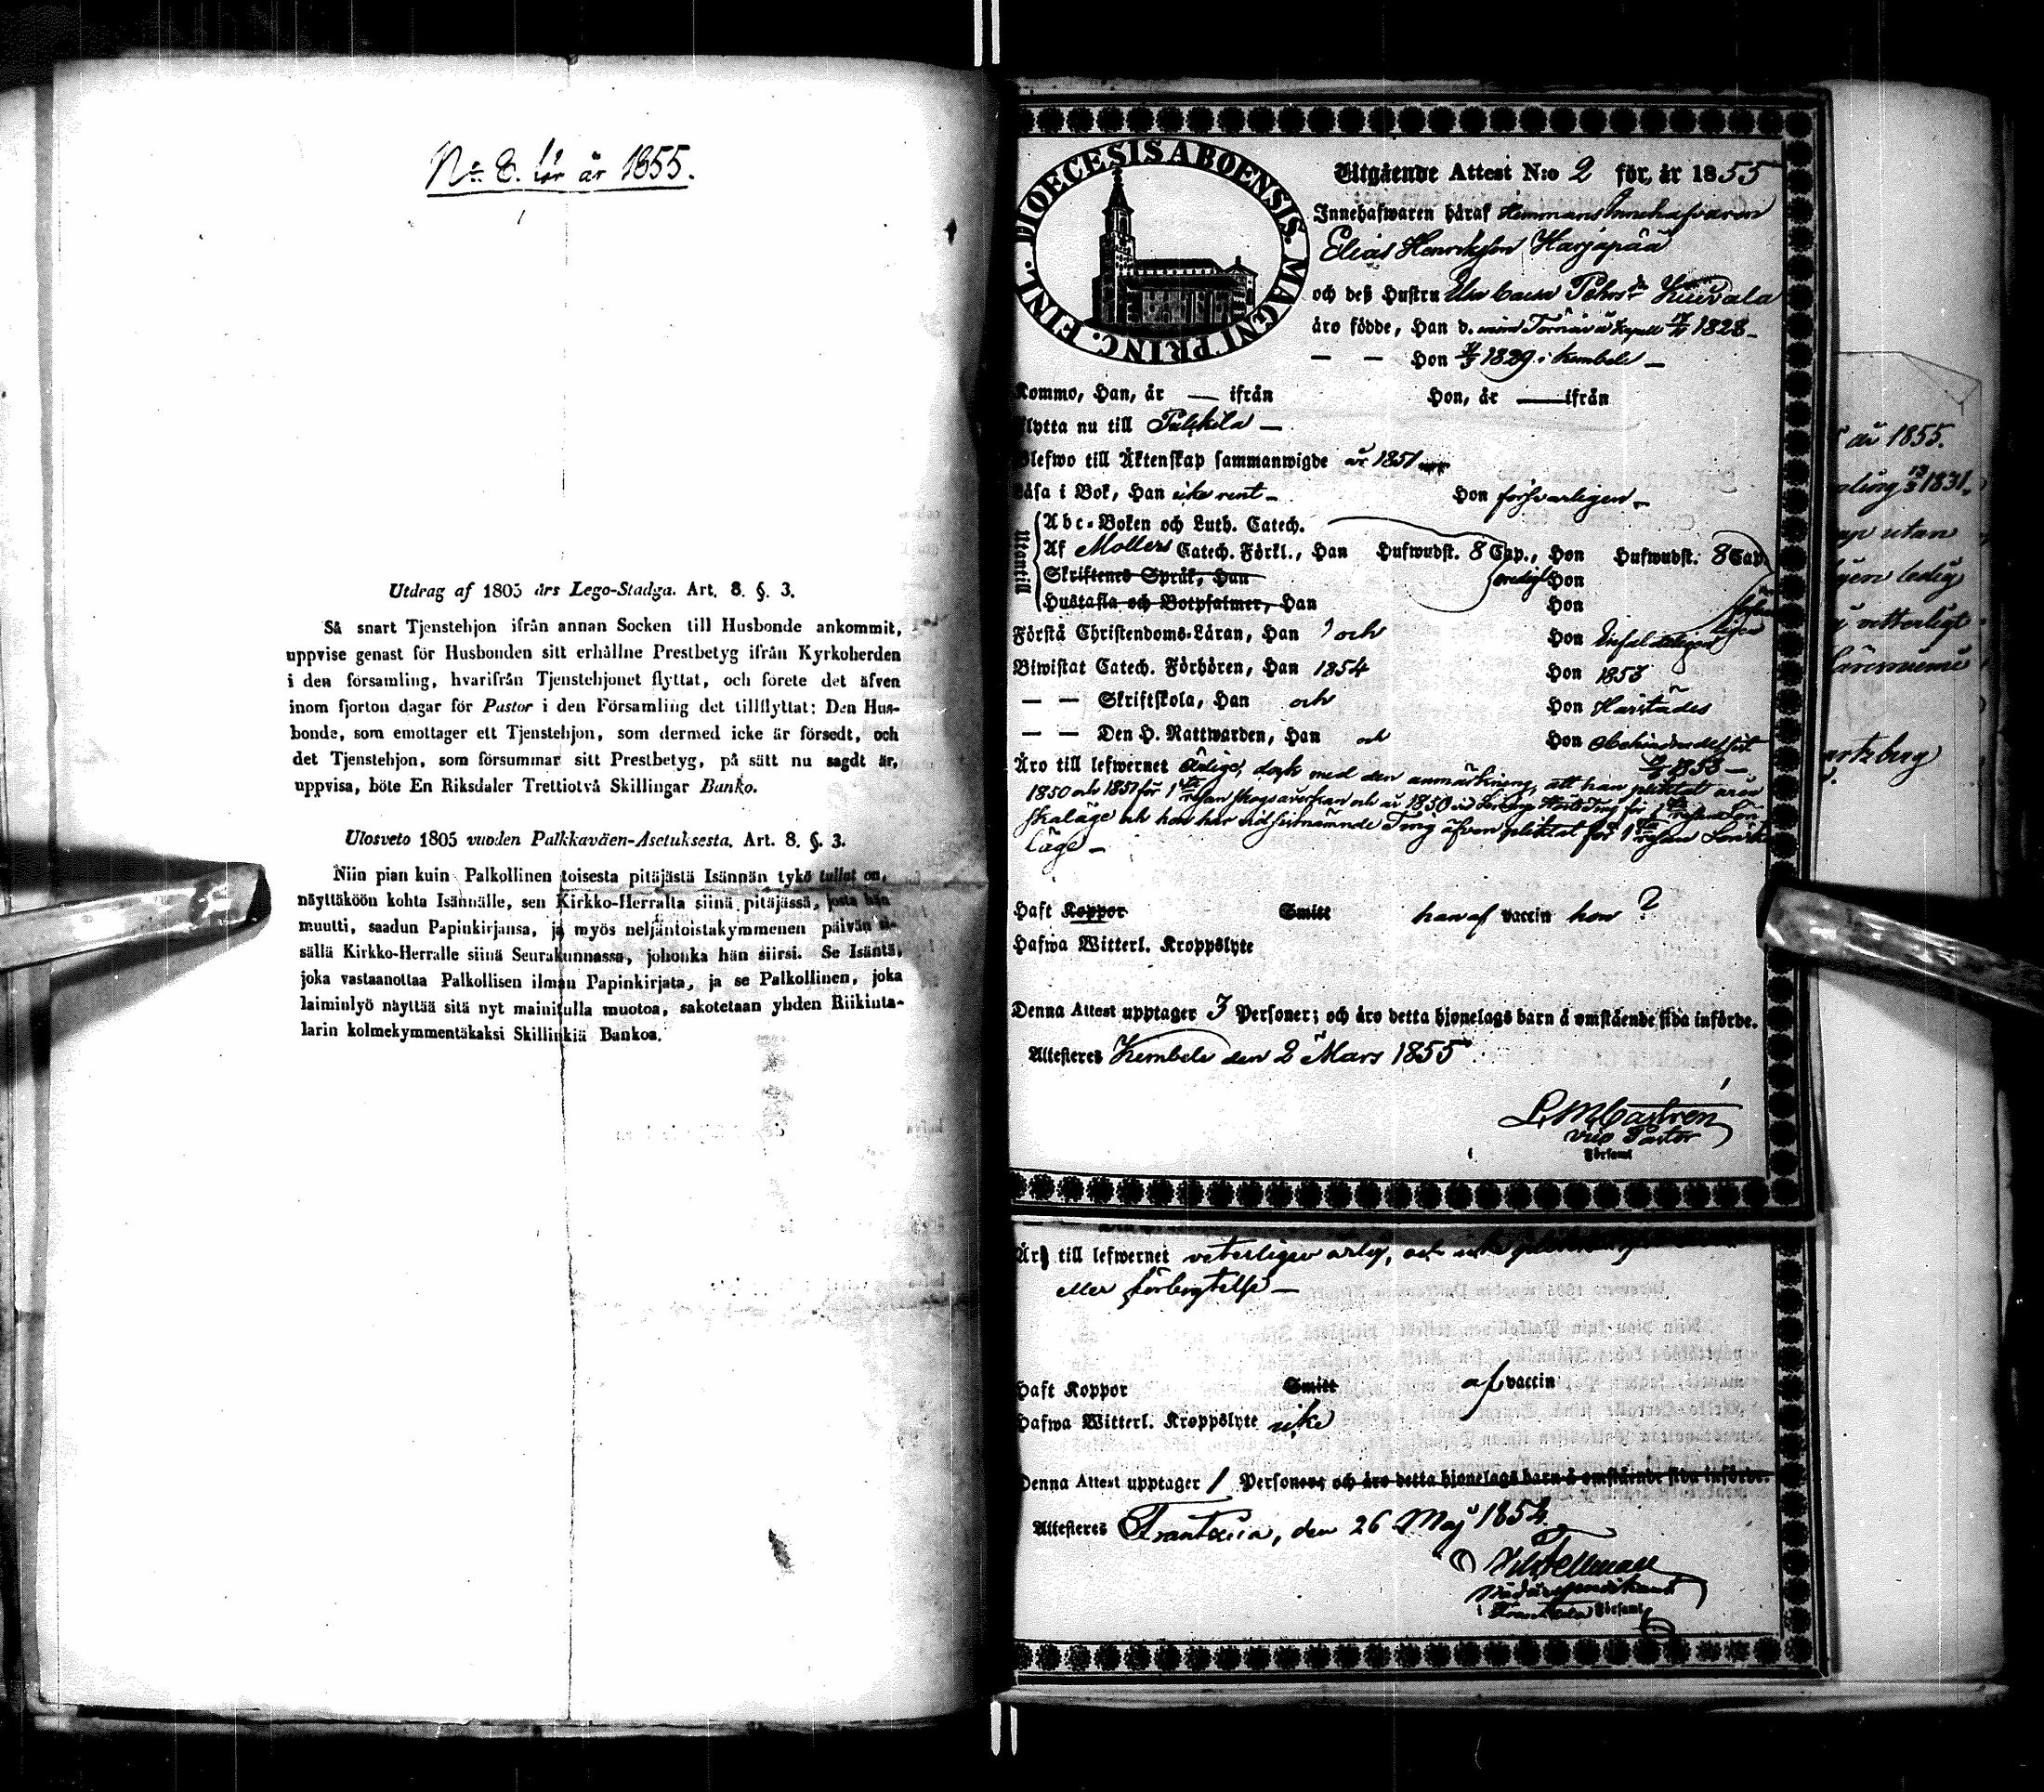 No 8. för år 1855.
Utdrag af 1805 års Lego-Stadga. Art. 8. §. 3.
Så snart Tjenstehjon ifrån annan Socken till Husbonde ankommit,
uppvise genast för Husbonden sitt erhållne Prestbetyg ifrån Kyrkoherden
i den församling, hvarifrån Tjenstehjonet flyttat, och förete det äfven
inom fjorton dagar för Pastor i den Församling det tillflyttat: Den Hus-
bonde, som emottager ett Tjenstehjon, som dermed icke är försedt, och
det Tjenstehjon, som försummar sitt Prestbetyg, på sätt nu sagdt är,
uppvisa, böte En Riksdaler Trettiotvå Skillingar Banko.
Ulosveto 1805 vuoden Palkkaväen-Asetuksesta. Art. 8. §. 3.
Niin pian kuin Palkollinen toisesta pitäjästä Isännän tykö tullut on,
näyttäköön kohta Isännälle, sen Kirkko-Herralta siinä pitäjässä, josta hän
muutti, saadun Papinkirjansa, ja myös neljäntoistakymmenen päivän si-
sällä Kirkko-Herralle siinä Seurakunnassa, johonka hän siirsi. Se Isäntä,
joka vastaanottaa Palkollisen ilman Papinkirjata, ja se Palkollinen, joka
laiminlyö näyttää sitä nyt mainitulla muotoa, sakotetaan yhden Riikinta-
larin kolmekymmentäkaksi Skillinkiä Bankoa.
DIOECESIS ABOENSIS. MAGNI PRINC. FINL.
Utgående Attest N:o 2 för år 1855
Innehafwaren häraf Hemmans Innehafvaren
Elias Henriksson Harjapää
och deß Hustru Pehrsdr Kuivala
äro födde, Han d. 1828
— — Hon 1829 i Kembele —
Kommo, Han, år — ifrån Hon, år — ifrån
Flytta nu till Pulkkila —
Blefwo till Äktenskap sammanwigde år 1851
Läsa i Bok, Han icke rent — Hon försvarligen —
Utantill
Abc-Boken och Luth. Catech.
Af Mollers Catech. Förkl., Han Hufwudst. 8 Cap., Hon Hufwudst. 8 Cap.
Skriftenes Språk, Han Hon
Hustafla och Botpsalmer, Han Hon
Förstå Christendoms-Läran, Han och Hon
Biwistat Catech. Förhören, Han 1854 Hon 1853
— — Skriftskola, Han och Hon
— — Den H. Nattwarden, Han och Hon
1853 —
Äro till lefwernet ärlige, dock med den anmärkning, att han pliktat åren
1850 och 1851 för 1sta resan och år 1850 vid Ting för 1sta resan Lön-
skaläge och hon har vid Ting äfven pliktat för 1sta resan Lönska
läge —
Haft Koppor Smitt han af vaccin hon ?
Hafwa Witterl. Kroppslyte
Denna Attest upptager 3 Personer; och äro detta hjonelags barn å omstående sida införde.
Attesteres Kembele den 2 Mars 1855
L M Castrén
Vice Pastor
i Församl
Är till lefwernet veterligen ärlig, och icke
eller förbrytelse —
Haft Koppor Smitt af vaccin
Hafwa Witterl. Kroppslyte icke
Denna Attest upptager 1 Personer; och äro detta hjonelags barn å omstående sida införde.
Attesteres Frantsila, den 26 Maj 1854.
i Frantsila Församl
år 1855.
1831.
utan
ledig
vetterligt